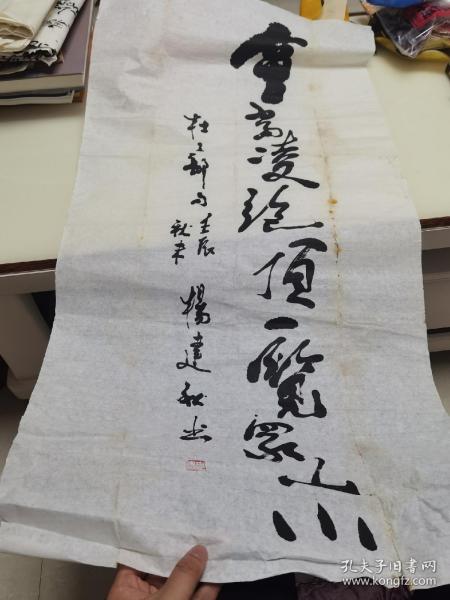 會當凌絕頂一覽眾山小
杜工部句壬辰
秋末
楊建秋书
孔夫子旧书网
www.kongfz.com